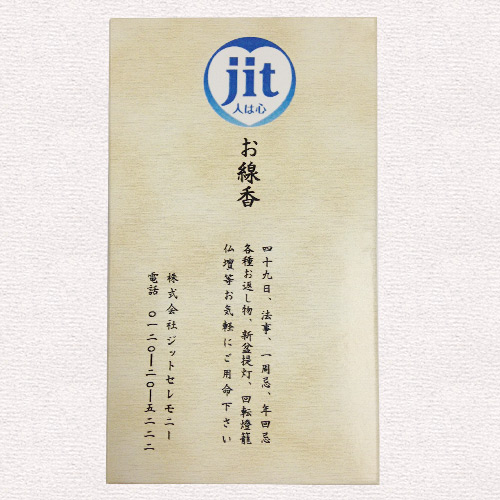 jit
人は心
お線香
四十九日、法事、一周忌、年回忌
各種お返し物、新盆提灯、回転燈籠
仏壇等お気軽にご用命下さい
株式会社ジットセレモニー
電話 〇一二〇ー二〇ー五二二二